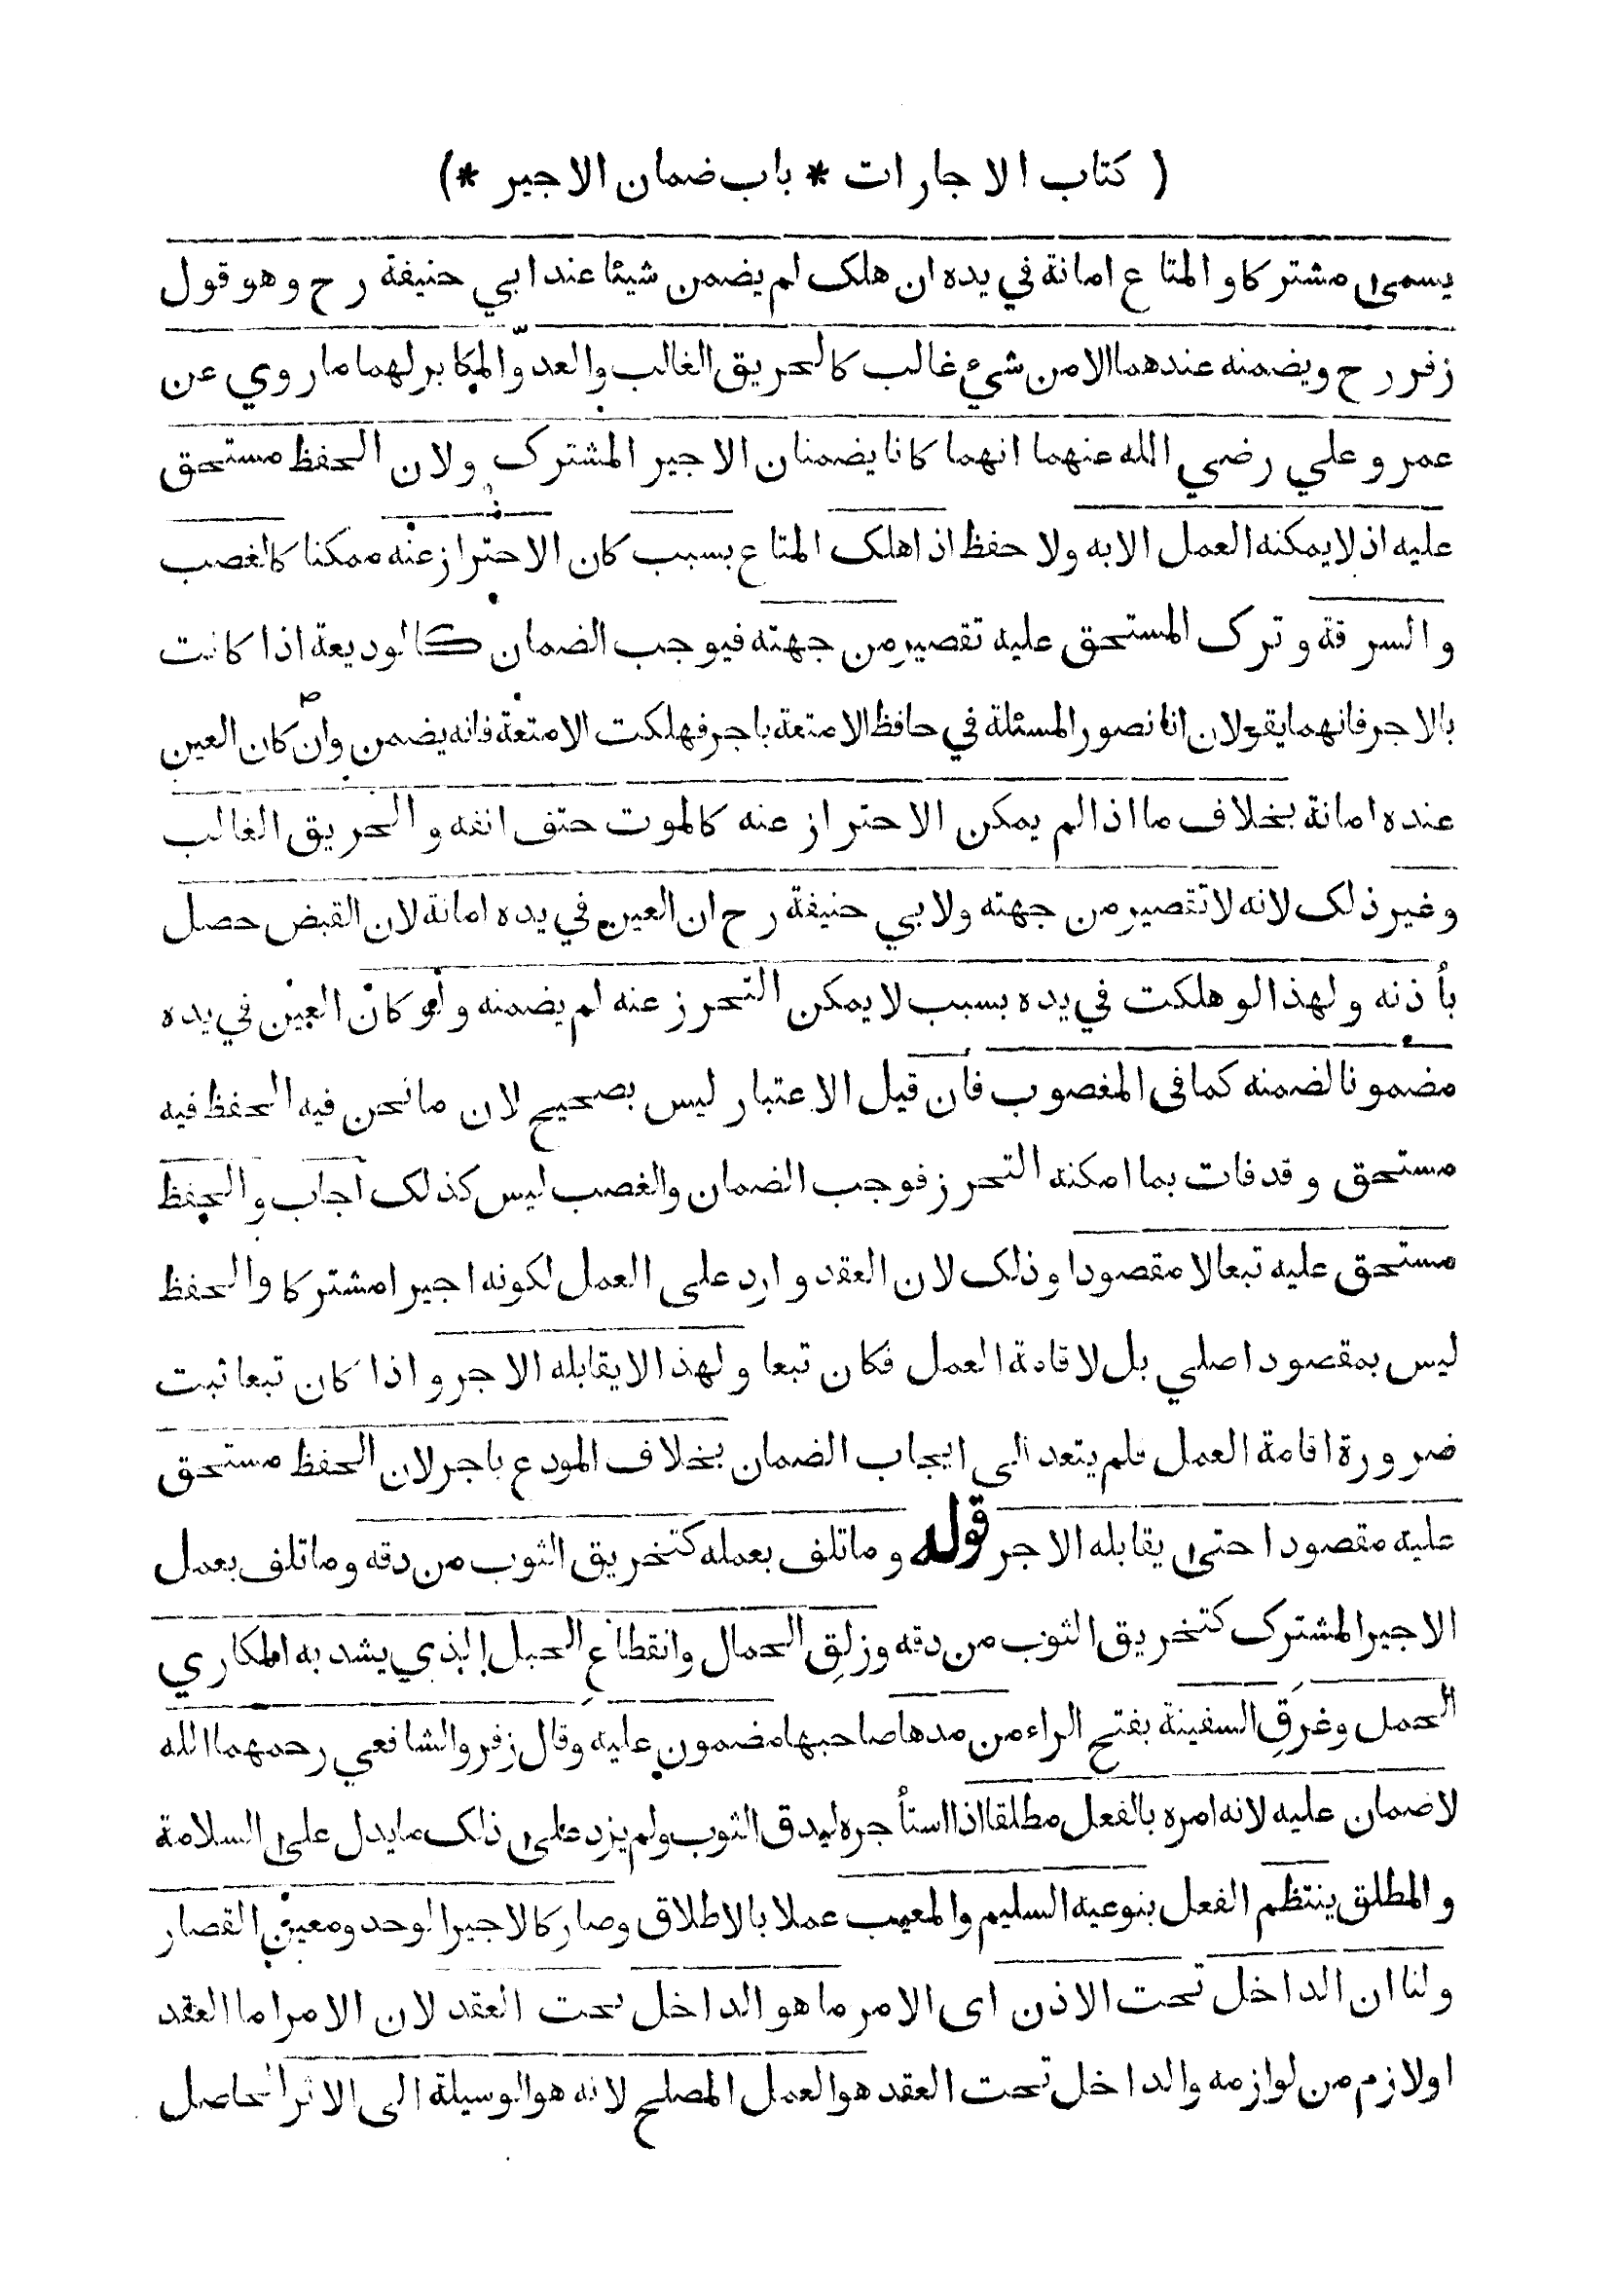 ( كتاب الاجارات * باب ضمان الاجير *)
يسمى مشتركا و المتاع امانة في يده ان هلك لم يضمن شيئا عند ابي حنيفة رح وهو قول
زفر رح ويضمنه عندهما الا من شيء غالب كالحريق الغالب والعدوّ المكابر لهما ما روي عن
عمر و علي رضي الله عنهما انهما كانا يضمنان الاجير المشترك ولان الحفظ مستحق
عليه اذ لا يمكنه العمل الا به ولا حفظ اذا هلك المتاع بسبب كان الاحتراز عنه ممكنا كالغصب
و السرقة و ترك المستحق عليه تقصير من جهته فيوجب الضمان كالوديعة اذا كانت
بالاجر فانهما يقولان انا نصور المسئلة في حافظ الامتعة باجر فهلكت الامتعة فانه يضمن وان كان العين
عنده امانة بخلاف ما اذا لم يمكن الاحتراز عنه كالموت حتف انفه و الحريق الغالب
وغير ذلك لانه لا تقصير من جهته ولابي حنيفة رح ان العين في يده امانة لان القبض حصل
بأذنه ولهذا لو هلكت في يده بسبب لا يمكن التحرز عنه لم يضمنه ولو كان العين في يده
مضمونا لضمنه كما في المغصوب فأن قيل الاعتبار ليس بصحيح لان ما نحن فيه الحفظ فيه
مستحق وقد فات بما امكنه التحرز فوجب الضمان والغصب ليس كذلك اجاب والحفظ
مستحق عليه تبعا لا مقصودا وذلك لان العقد وارد على العمل لكونه اجيرا مشتركا والحفظ
ليس بمقصود اصلي بل لاقامة العمل فكان تبعا ولهذا لا يقابله الاجر و اذا كان تبعا ثبت
ضرورة اقامة العمل فلم يتعد الى ايجاب الضمان بخلاف المودع باجر لان الحفظ مستحق
عليه مقصودا حتى يقابله الاجر قوله وما تلف بعمله كتخريق الثوب من دقه وما تلف بعمل
الاجير المشترك كتخريق الثوب من دقه وزلق الحمال وانقطاع الحبل الذي يشد به المكاري
الحمل وغرق السفينة بفتح الراء من مدها صاحبها مضمون عليه وقال زفر والشافعي رحمهما الله
لا ضمان عليه لانه امره بالفعل مطلقا اذا استأجره ليدق الثوب ولم يزد على ذلك ما يدل على السلامة
و المطلق ينتظم الفعل بنوعيه السليم والمعيب عملا بالاطلاق وصار كالاجير الوحد ومعين القصار
ولنا ان الداخل تحت الاذن اى الامر ما هو الداخل تحت العقد لان الامر اما العقد
او لازم من لوازمه والداخل تحت العقد هو العمل المصلح لانه هو الوسيلة الى الاثر الحاصل